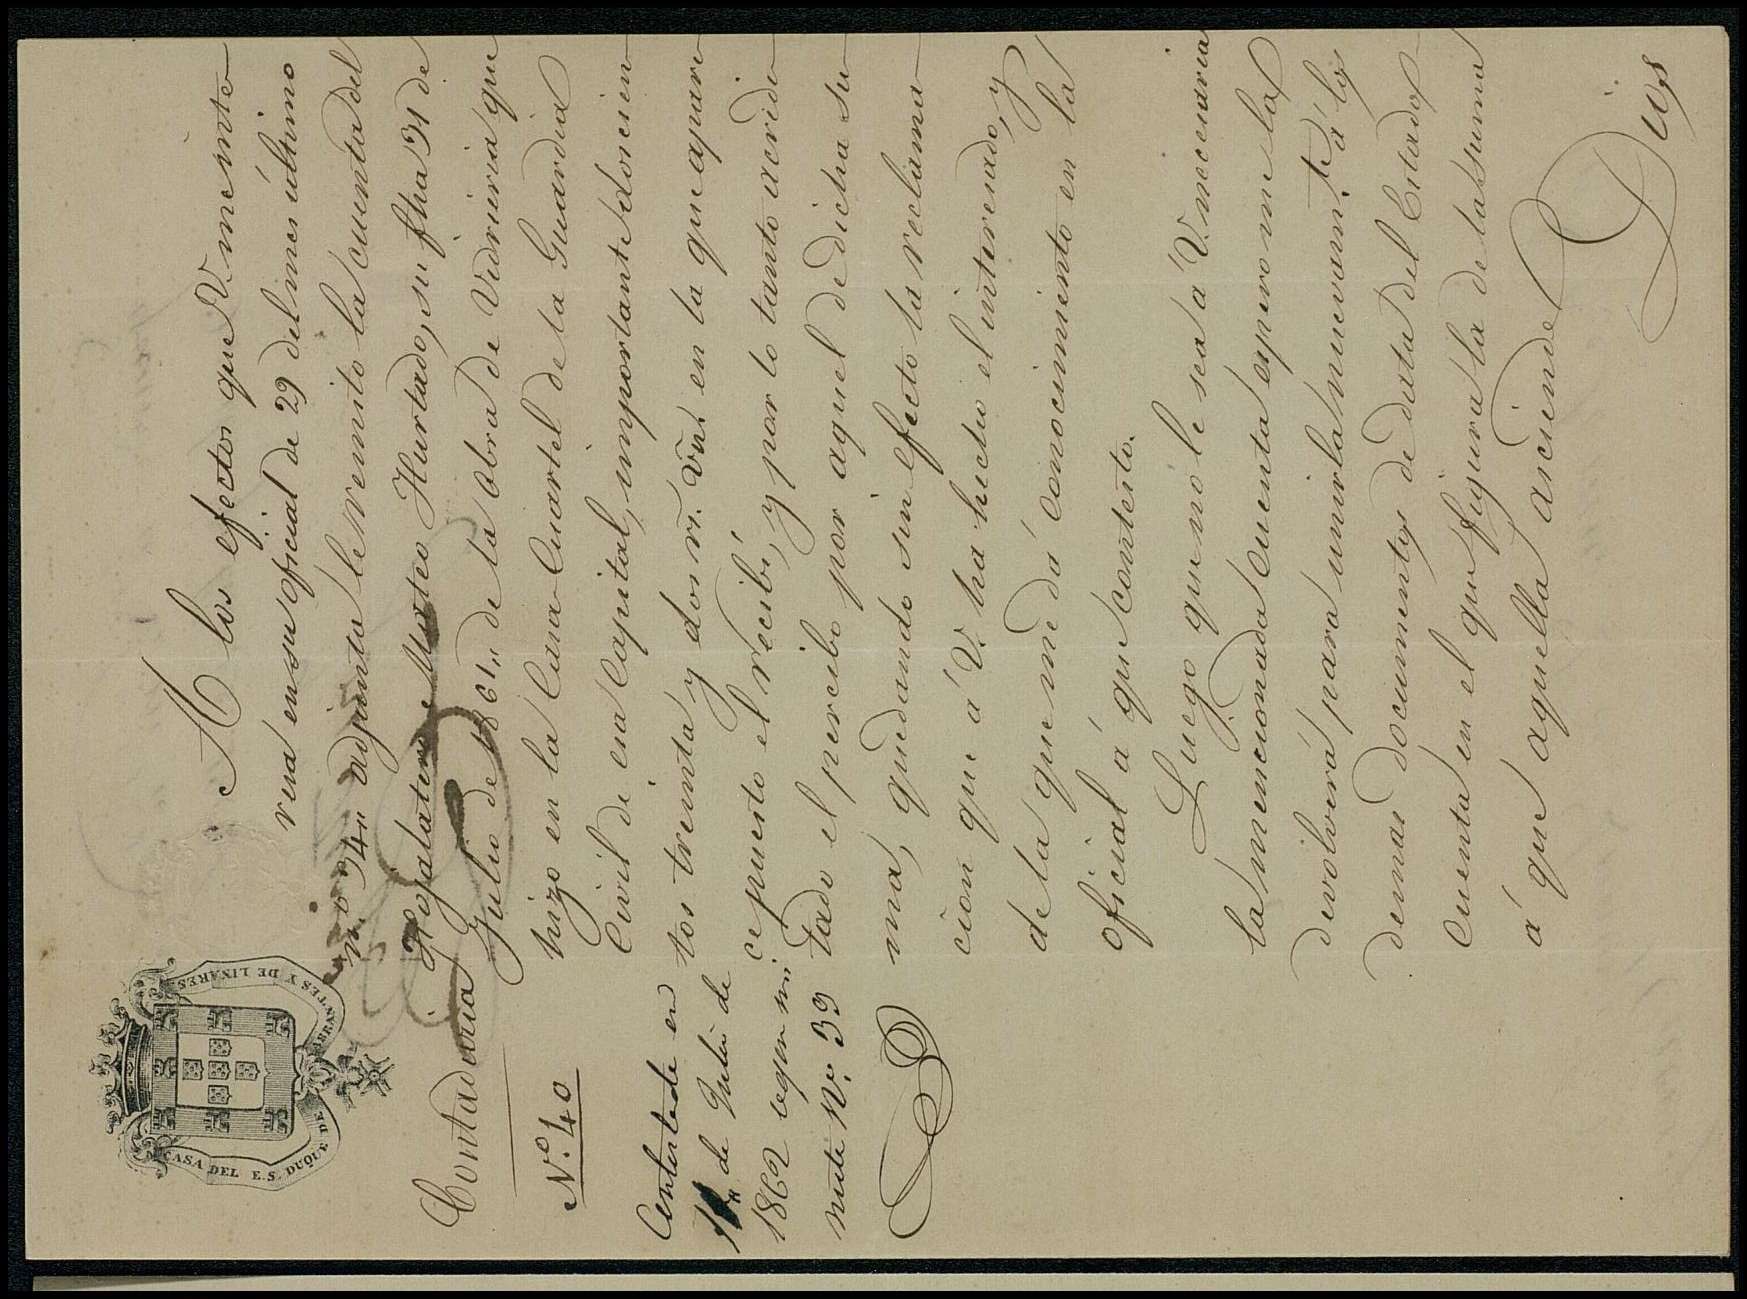 CASA DEL E.S. DUQUE DE ABRANTES Y DE LINARES
Contaduria
N.º 40
Contestada en
de Julio de
1862 segun mi
nute Nº 39
A los efectos que V. me inte
resa en su oficial de 29 del mes último
n.º 34,, adjunta le remito la cuenta del
Hojalatero Mateo Hurtado, su fha 31 de
Julio de 1861,, de la obra de Vidrieria que
hizo en la Casa-Cuartel de la Guardia
Civil de esa Capital, importante doscien
tos treinta y dos rs. vn. en la que apare
ce puesto el recibí, y por lo tanto acredi
tado el percibo por aquel de dicha su
ma, quedando sin efecto la reclama
cion que á V. ha hecho el interesado, y
de la que me dá conocimiento en la
oficial á que contesto.
Luego que no le sea á V. necesaria
la mencionada cuenta espero me la
devolverá para unirla nuevam.te á los
demas documentos de data del Estado-
Cuenta en el que figura la de la suma
á que aquella asciende
Dios